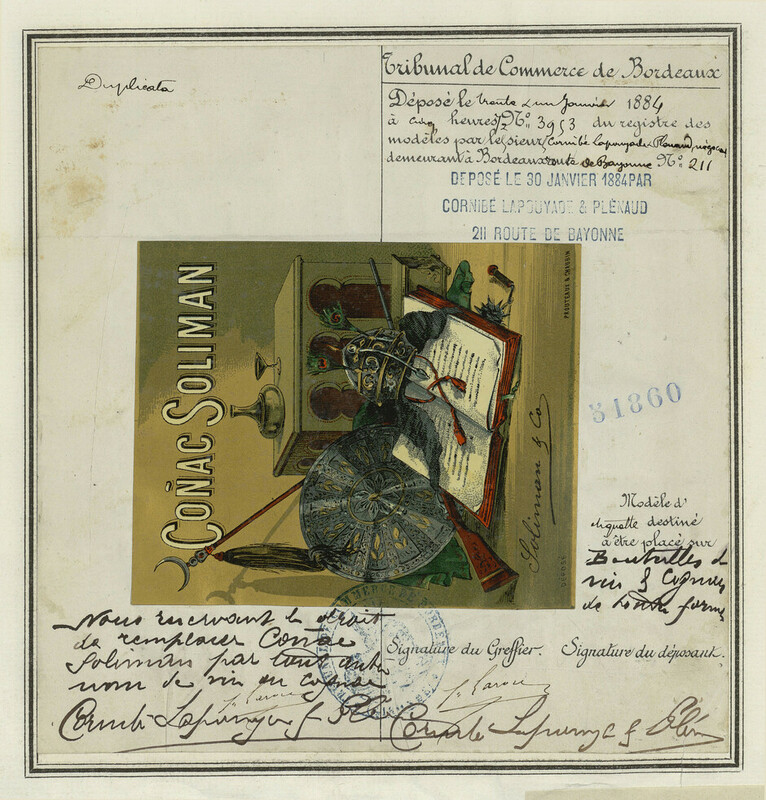 Duplicata
Tribunal de Commerce de Bordeaux
Déposé le trente & un Janvier 1884
à cinq heures ½ No. 3953 du registre des
modèles par le sieur Cornibé Lapouyade & Plénaud, négo
demeurant à Bordeaux route de Bayonne No. 211
DEPOSÉ LE 30 JANVIER 1884 PAR
CORNIBÉ LAPOUYADE & PLÉNAUD
211 ROUTE DE BAYONNE
COÑAC SOLIMAN
Soliman & Co
51860
Modèle d'
étiquette destiné
à être placé sur
Bouteilles de
vin & Cognac
de toute forme
Nous réservant le droit
de remplacer Coñac
Soliman par tout autre
nom de vin ou cognac
Signature du Greffier.
Signature du déposant.
Cornibé Lapouyade & Plé
Cornibé Lapouyade & Plén